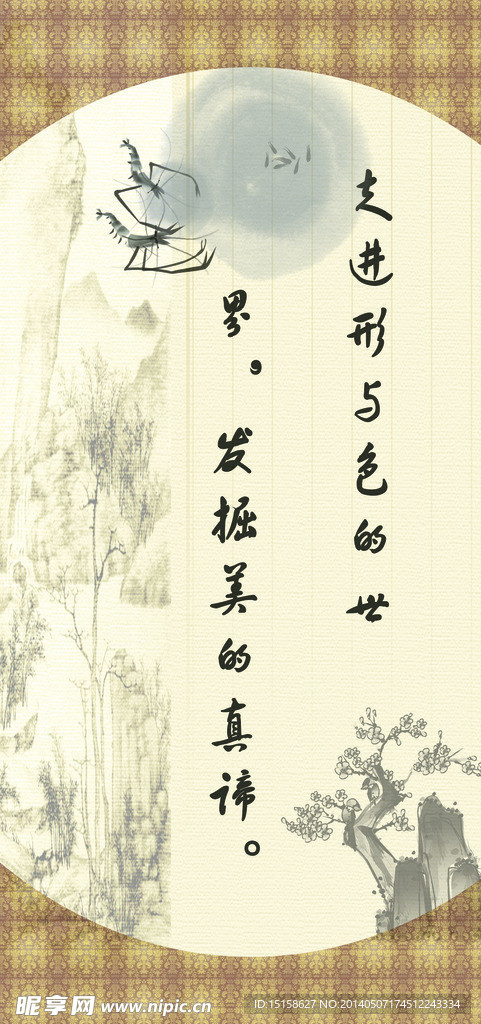 走进形与色的世
界，发掘美的真谛。
昵享网 www.nipic.cn
ID:15158627 NO:20140507174512243334